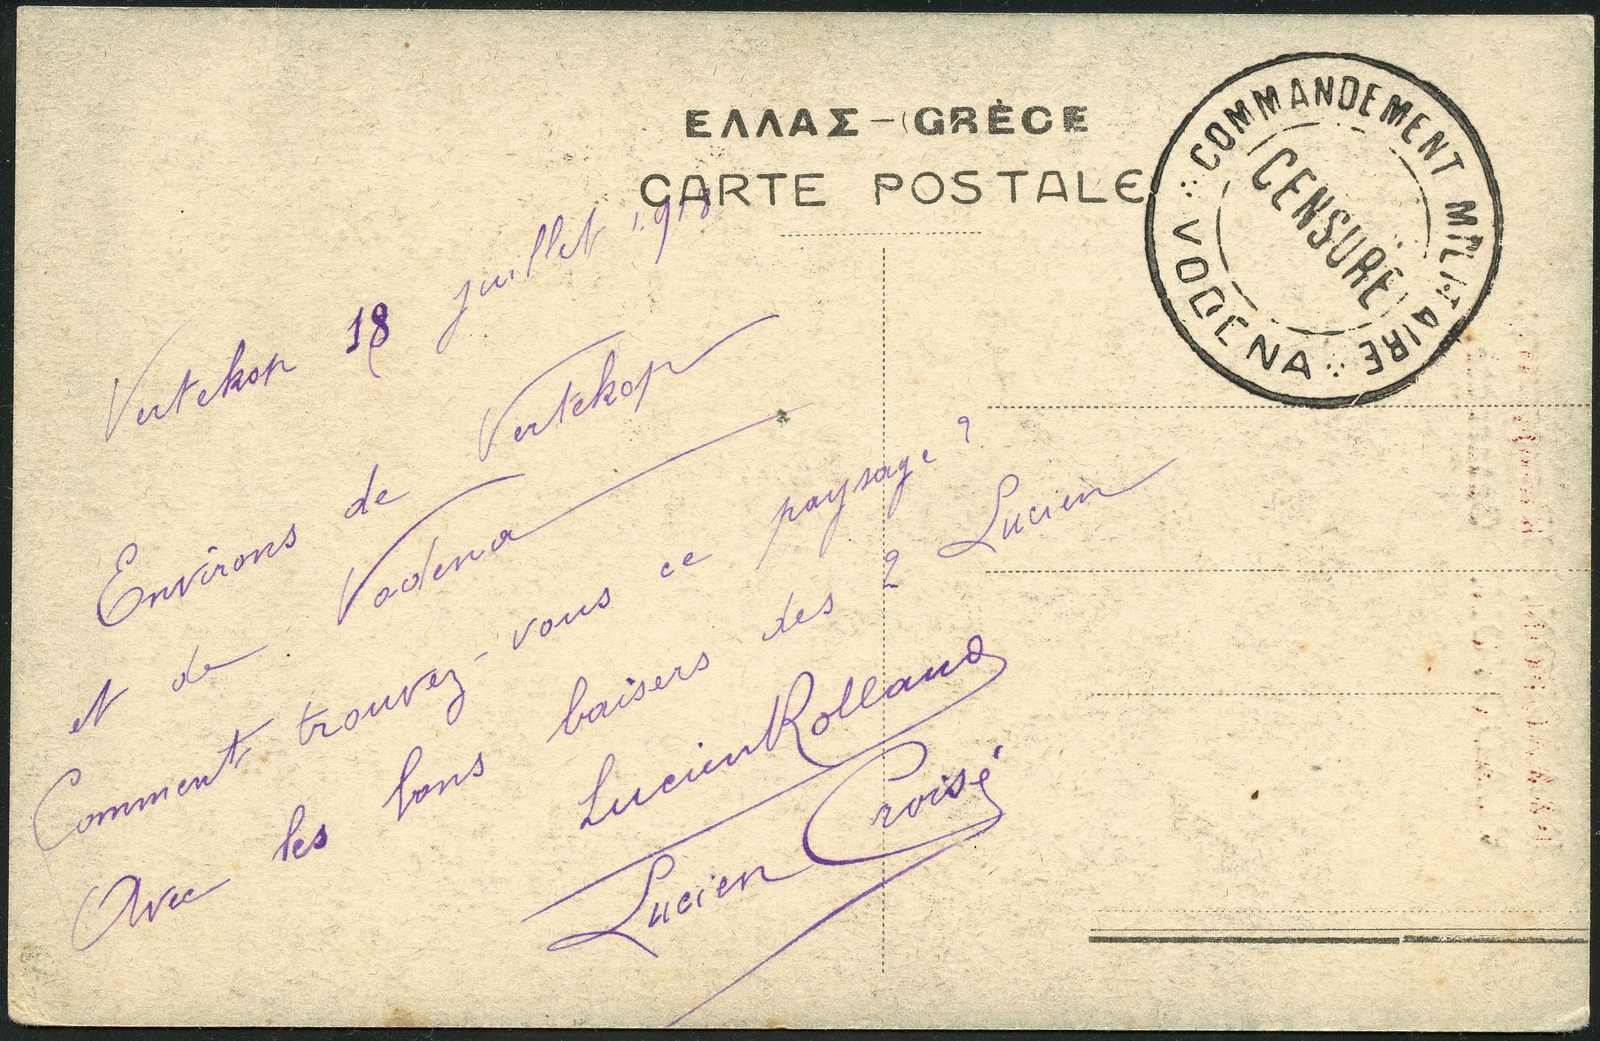 ΕΛΛΑΣ – GRÈCE
CARTE POSTALE
COMMANDEMENT MILITAIRE
VODENA
CENSURE
Vertekop 18 juillet 1918
Environs de Vertekop
et de Vodena
Comment trouvez-vous ce paysage ?
Avec les bons baisers des 2 Lucien
Lucien Rolland
Lucien Croisé